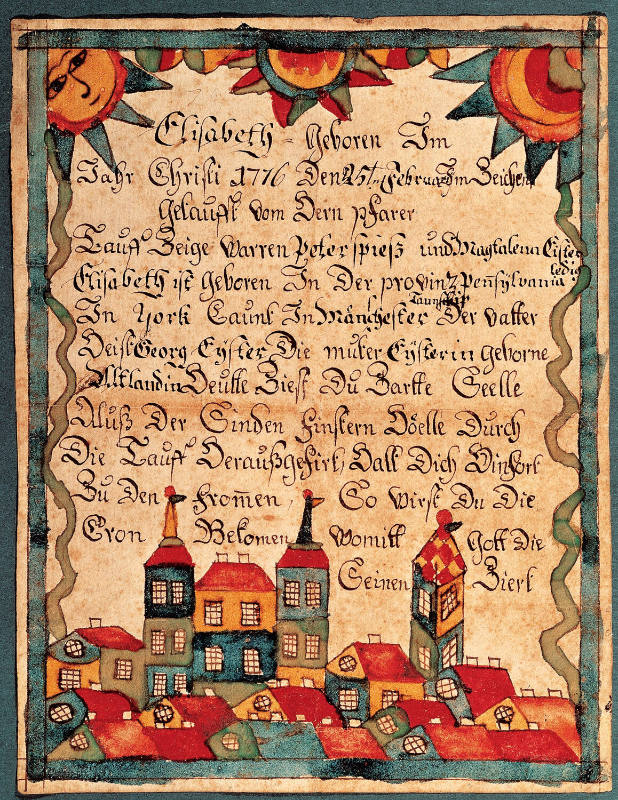 Elisabeth - Geboren Im
Jahr Christi 1776 Den 25t. Februar Im Zeichen
Getaufft Vom Dern pfarer
Tauff Zeige Warren Peter spiesz und Magtalena Eister
ledig
Elisabeth ist Geboren In Der provintz Pensylvania
In York Caunt In Mänchester Taunschip Der Vatter
Heist Georg Eyster Die muter Eysterin Geborne
Altlandin Heutte Ziest Du Zartte Seelle
Ausz Der Sinden Finstern Höelle Durch
Die Tauff Herauszgefirt, Halt Dich Hinfort
Zu Den Fromen, So Wirst Du Die
Cron Bekomen Womitt Gott Die
Seinen Ziert